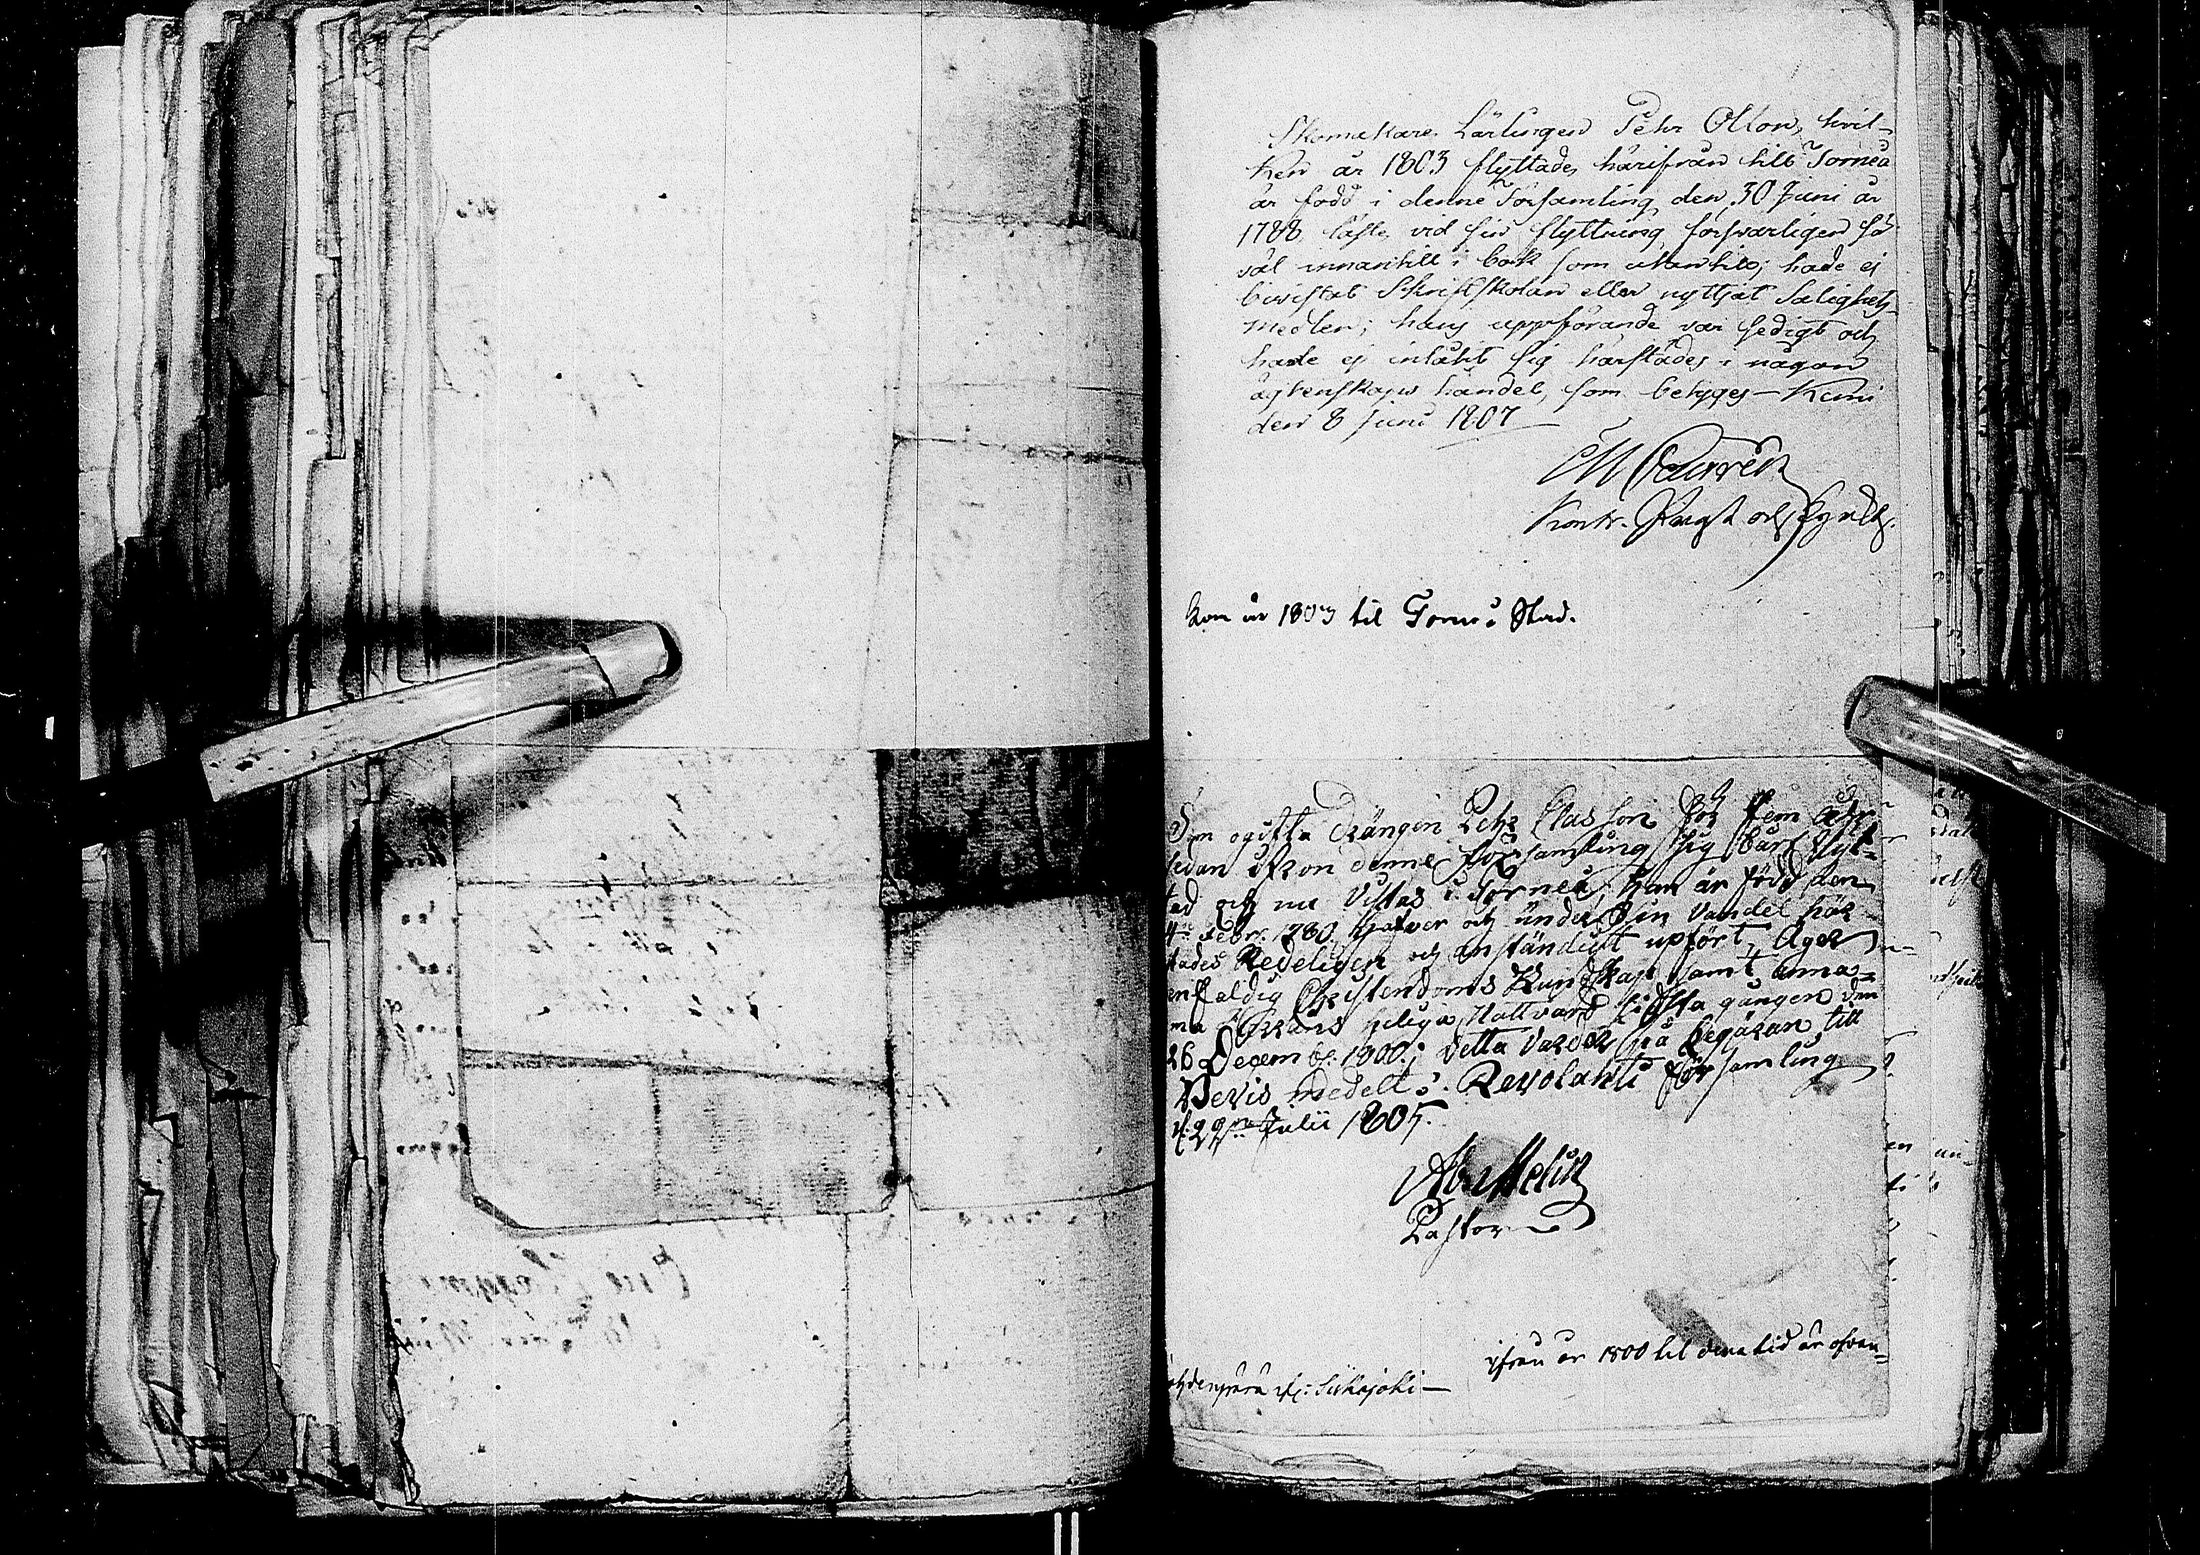 Skomakare Lärlingen Pehr Ollon, hvil-
ken år 1803 flyttade härifrån till Torneå
är född i denne Församling den 30 Juni år
1788, läste vid sin flyttning försvarligen så
väl innantill i bok som utantill; hade ej
bivistat Skriftskolan eller nyttjat Salighets
medlen; hans uppförande var sedigt och
hade ej inlåtit sig härstädes i någon
ägtenskaps handel, som betyges — Kemi
den 8 Junii 1807
Kontr. Prost och Kyrkh.
Kom år 1803 til Torneå Stad.
Den ogifta Drängen Pehr Classon för fem åhr
sedan ifron denne Församling sig bort flyt-
tad och nu Vistas i Torneå; han är född den
4de Febr. 1780, hafver och under sin Vandel här
stades Redeligen och anständigt upfört, Äger
enfaldig Christendoms Kundskap samt anna-
ma Herrans heliga Nattvard sidsta gången den
26 Decemb. 1800; detta varder på begäran till
Bevis medelt. Revolanti Församling
d. 29de Julii 1805.
Pastor
ifrån år 1800 til dena tid är ofvan-
Siikajoki —